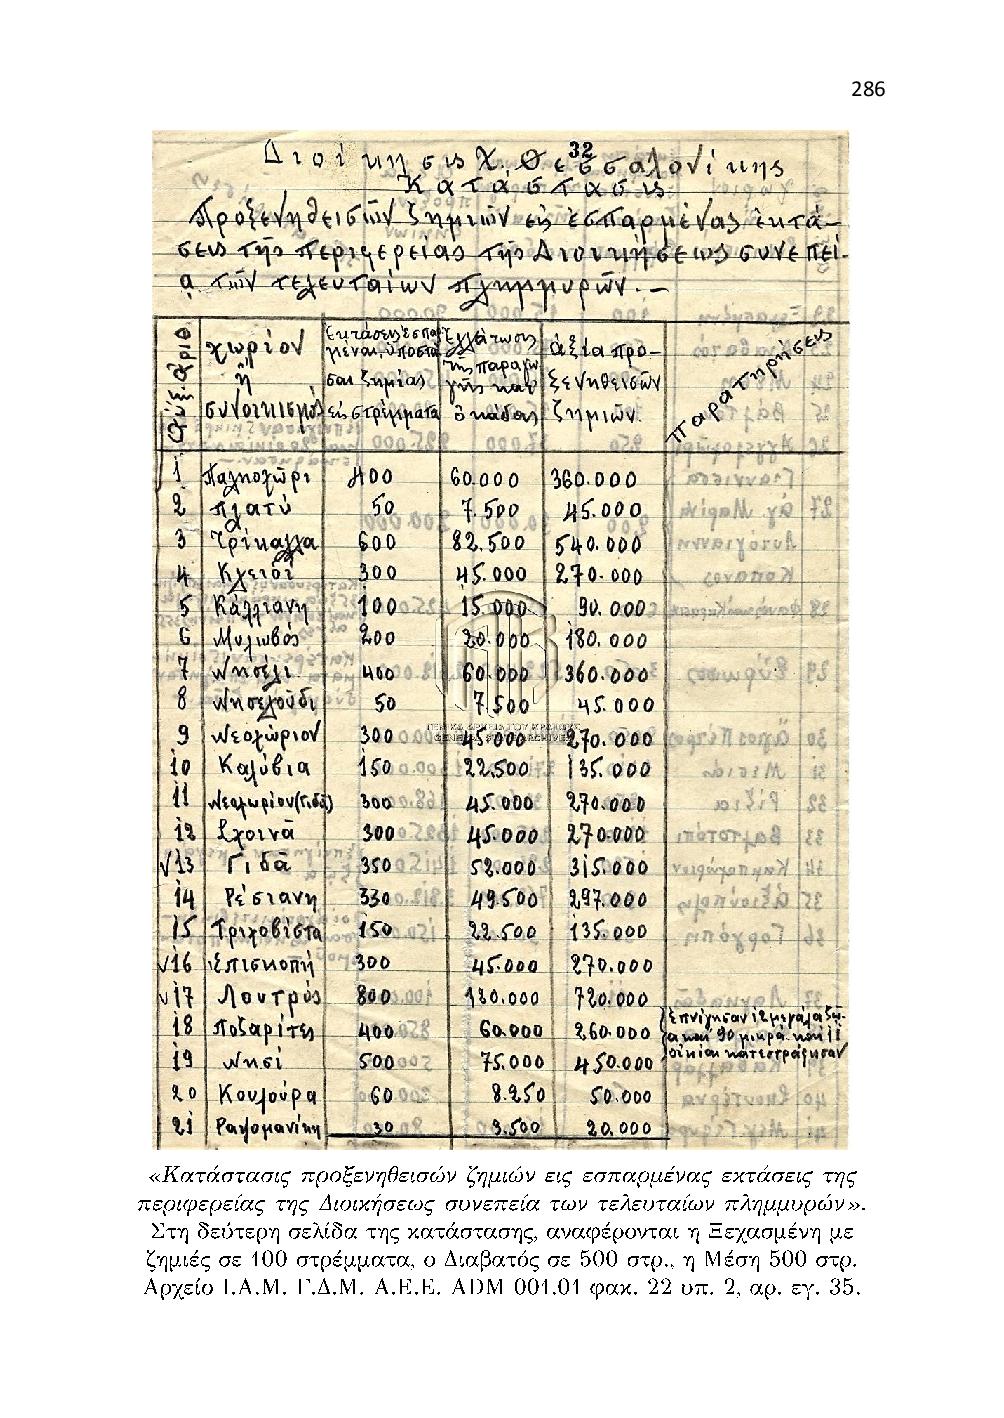 286
32
Διοίκησις Χ. Θεσσαλονίκης
Κατάστασις
Προξενηθεισῶν ζημιῶν εἰς ἐσπαρμένας ἐκτά-
σεις τῆς περιφερείας τῆς Διοικήσεως συνεπεί-
ᾳ τῶν τελευταίων πλημμυρῶν.-
Αὔξ. Ἀριθ. χωρίον ἢ συνοικισμός Ἐκτάσεις ἐσπαρμέναι ὑποστᾶσαι ζημίας εἰς στρέμματα Ἐλάττωσις τῆς παραγωγῆς κατ' ὀκάδας ἀξία προξενηθεισῶν ζημιῶν Παρατηρήσεις
1 Παληοχῶρι 400 60.000 360.000
2 Πλατύ 50 7.500 45.000
3 Τρίκαλλα 600 82.500 540.000
4 Κλειδί 300 45.000 270.000
5 Κάλλιανη 100 15.000 90.000
6 Μυλωβός 200 20.000 180.000
7 Νησέλι 400 60.000 360.000
8 Νησελούδι 50 7.500 45.000
9 Νεοχώριον 300 45.000 270.000
10 Καλύβια 150 22.500 135.000
11 Νεοχωρίον (Γιδᾶ) 300 45.000 270.000
12 Σχοινᾶ 300 45.000 270.000
√13 Γιδᾶ 350 52.000 315.000
14 Ρέσιανη 330 49.500 297.000
15 Τριχοβίστα 150 22.500 135.000
√16 Ἐπισκοπή 300 45.000 270.000
√17 Λουτρός 800 120.000 720.000
18 Ποζαρίτες 400 60.000 260.000 Ἐπνίγησαν 12 μεγάλα ζῶ-
α καὶ 90 μικρά. καὶ 11
οἰκίαι κατεστράφησαν
19 Νησί 500 75.000 450.000
20 Κουλούρα 60 8.250 50.000
21 Ραψομανίκη 30 3.500 20.000
ΓΕΝΙΚΑ ΑΡΧΕΙΑ ΤΟΥ ΚΡΑΤΟΥΣ
GENERAL STATE ARCHIVES
«Κατάστασις προξενηθεισών ζημιών εις εσπαρμένας εκτάσεις της
περιφερείας της Διοικήσεως συνεπεία των τελευταίων πλημμυρών».
Στη δεύτερη σελίδα της κατάστασης, αναφέρονται η Ξεχασμένη με
ζημιές σε 100 στρέμματα, ο Διαβατός σε 500 στρ., η Μέση 500 στρ.
Αρχείο Ι.Α.Μ. Γ.Δ.Μ. Α.Ε.Ε. ADM 001.01 φακ. 22 υπ. 2, αρ. εγ. 35.